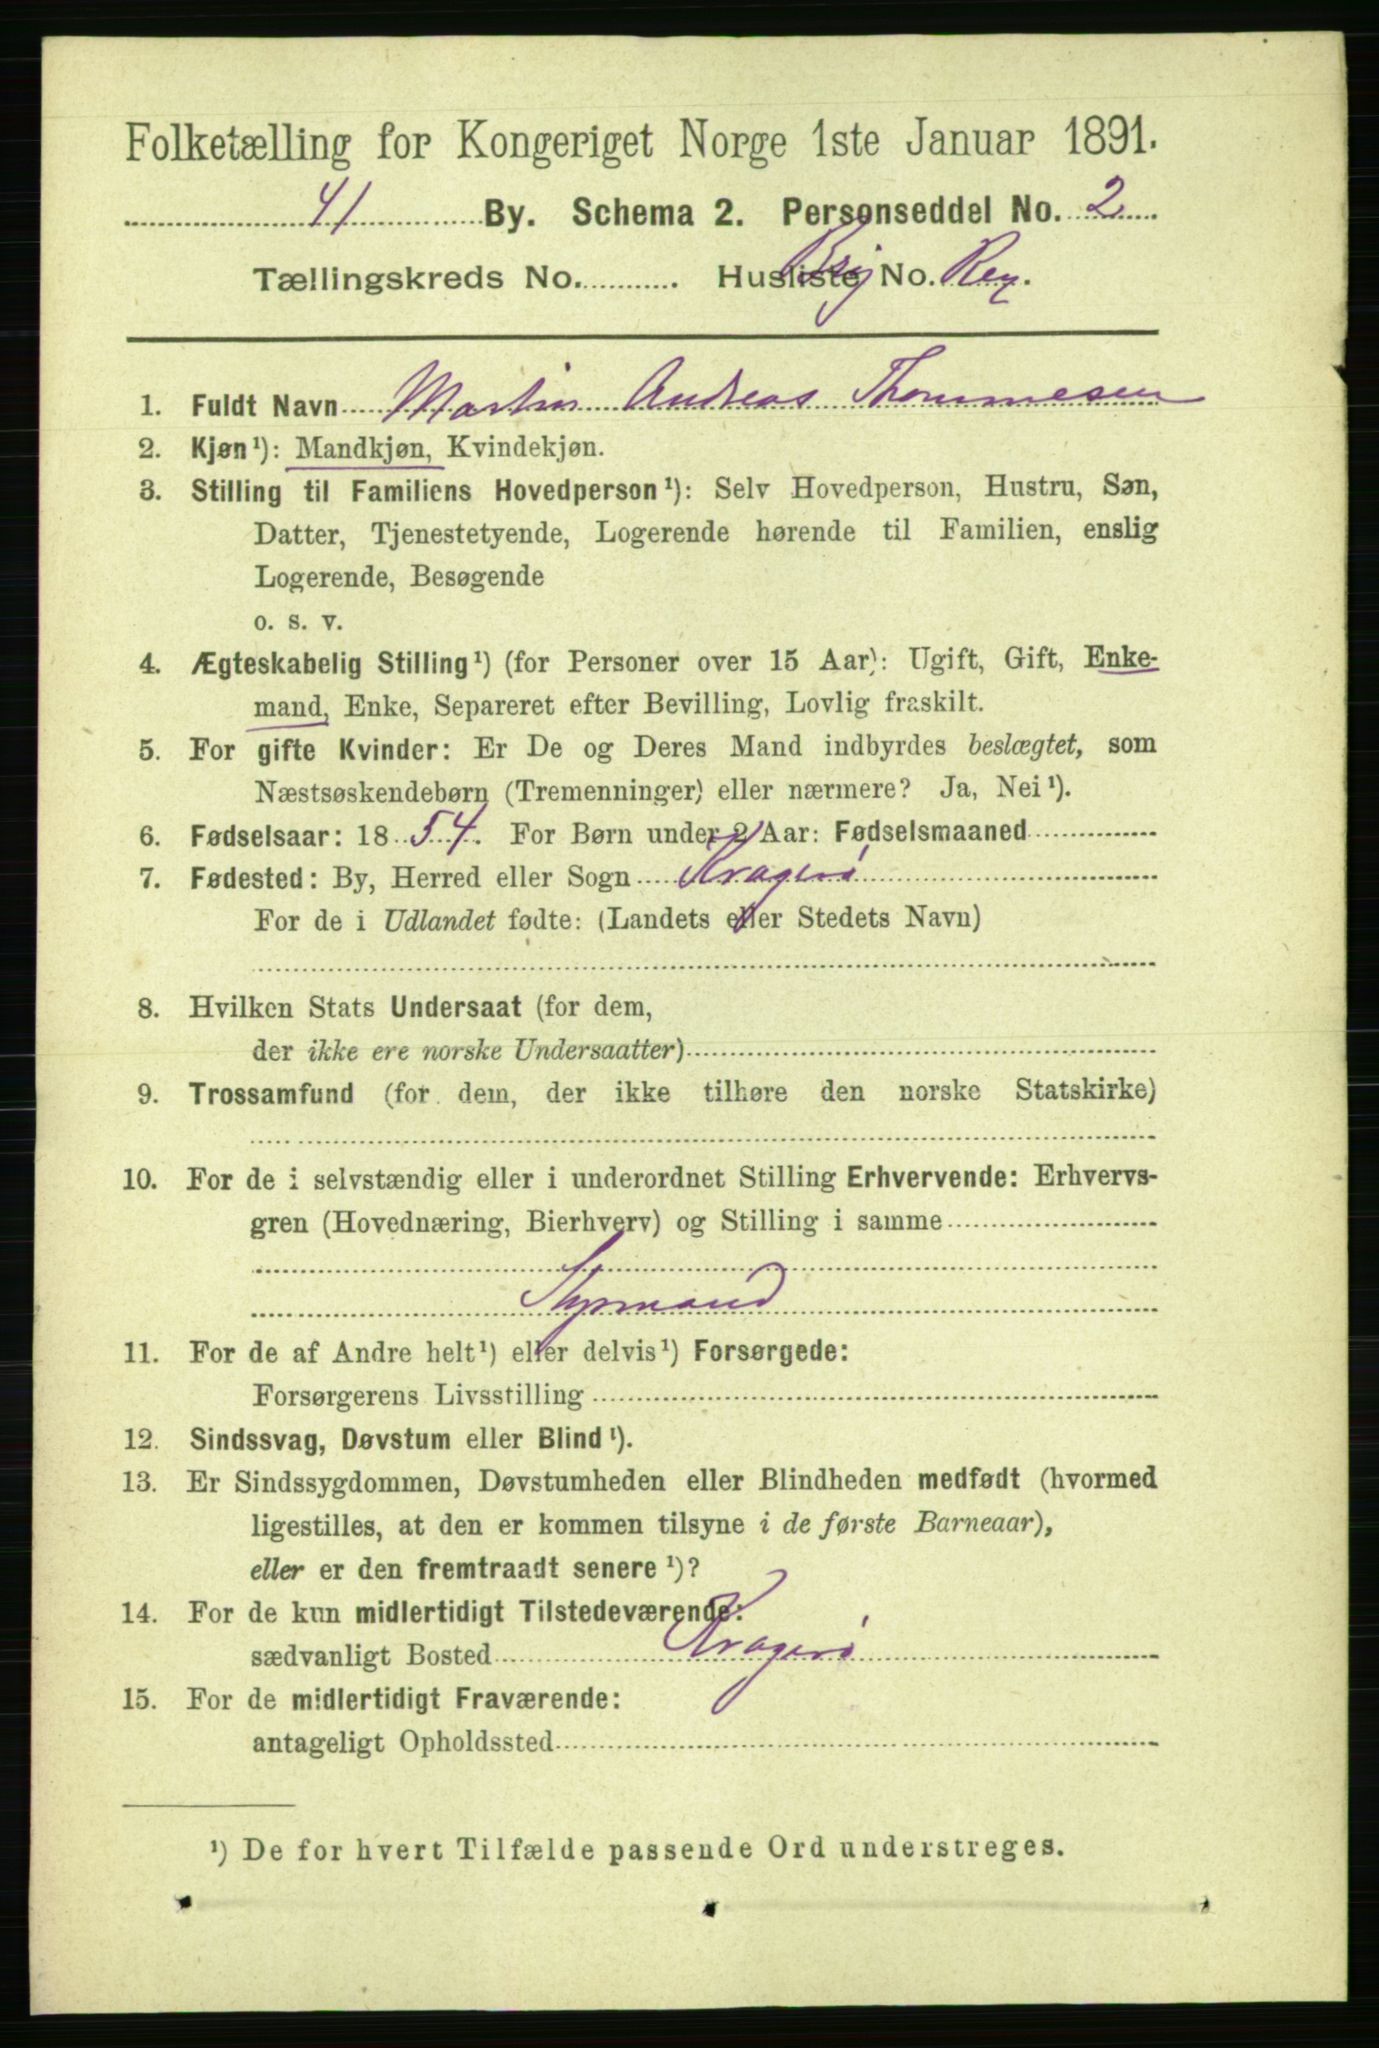 Folketælling for Kongeriget Norge 1ste Januar 1891.
41 By. Schema 2. Personseddel No. 2
Tællingskreds No. Husliste No. Brig Rex.
1. Fuldt Navn Martin Andreas Thommesen
2. Kjøn¹): Mandkjøn, Kvindekjøn.
3. Stilling til Familiens Hovedperson¹): Selv Hovedperson, Hustru, Søn,
Datter, Tjenestetyende, Logerende hørende til Familien, enslig
Logerende, Besøgende
o. s. v.
4. Ægteskabelig Stilling¹) (for Personer over 15 Aar): Ugift, Gift, Enke-
mand, Enke, Separeret efter Bevilling, Lovlig fraskilt.
5. For gifte Kvinder: Er De og Deres Mand indbyrdes beslægtet, som
Næstsøskendebørn (Tremenninger) eller nærmere? Ja, Nei¹).
6. Fødselsaar: 1854. For Børn under 2 Aar: Fødselsmaaned
7. Fødested: By, Herred eller Sogn Kragerø
For de i Udlandet fødte: (Landets eller Stedets Navn)
8. Hvilken Stats Undersaat (for dem,
der ikke ere norske Undersaatter)
9. Trossamfund (for dem, der ikke tilhøre den norske Statskirke)
10. For de i selvstændig eller i underordnet Stilling Erhvervende: Erhvervs-
gren (Hovednæring, Bierhverv) og Stilling i samme
Styrmand
11. For de af Andre helt¹) eller delvis¹) Forsørgede:
Forsørgerens Livsstilling
12. Sindssvag, Døvstum eller Blind¹).
13. Er Sindssygdommen, Døvstumheden eller Blindheden medfødt (hvormed
ligestilles, at den er kommen tilsyne i de første Barneaar),
eller er den fremtraadt senere¹)?
14. For de kun midlertidigt Tilstedeværende:
sædvanligt Bosted Kragerø
15. For de midlertidigt Fraværende:
antageligt Opholdssted
¹) De for hvert Tilfælde passende Ord understreges.